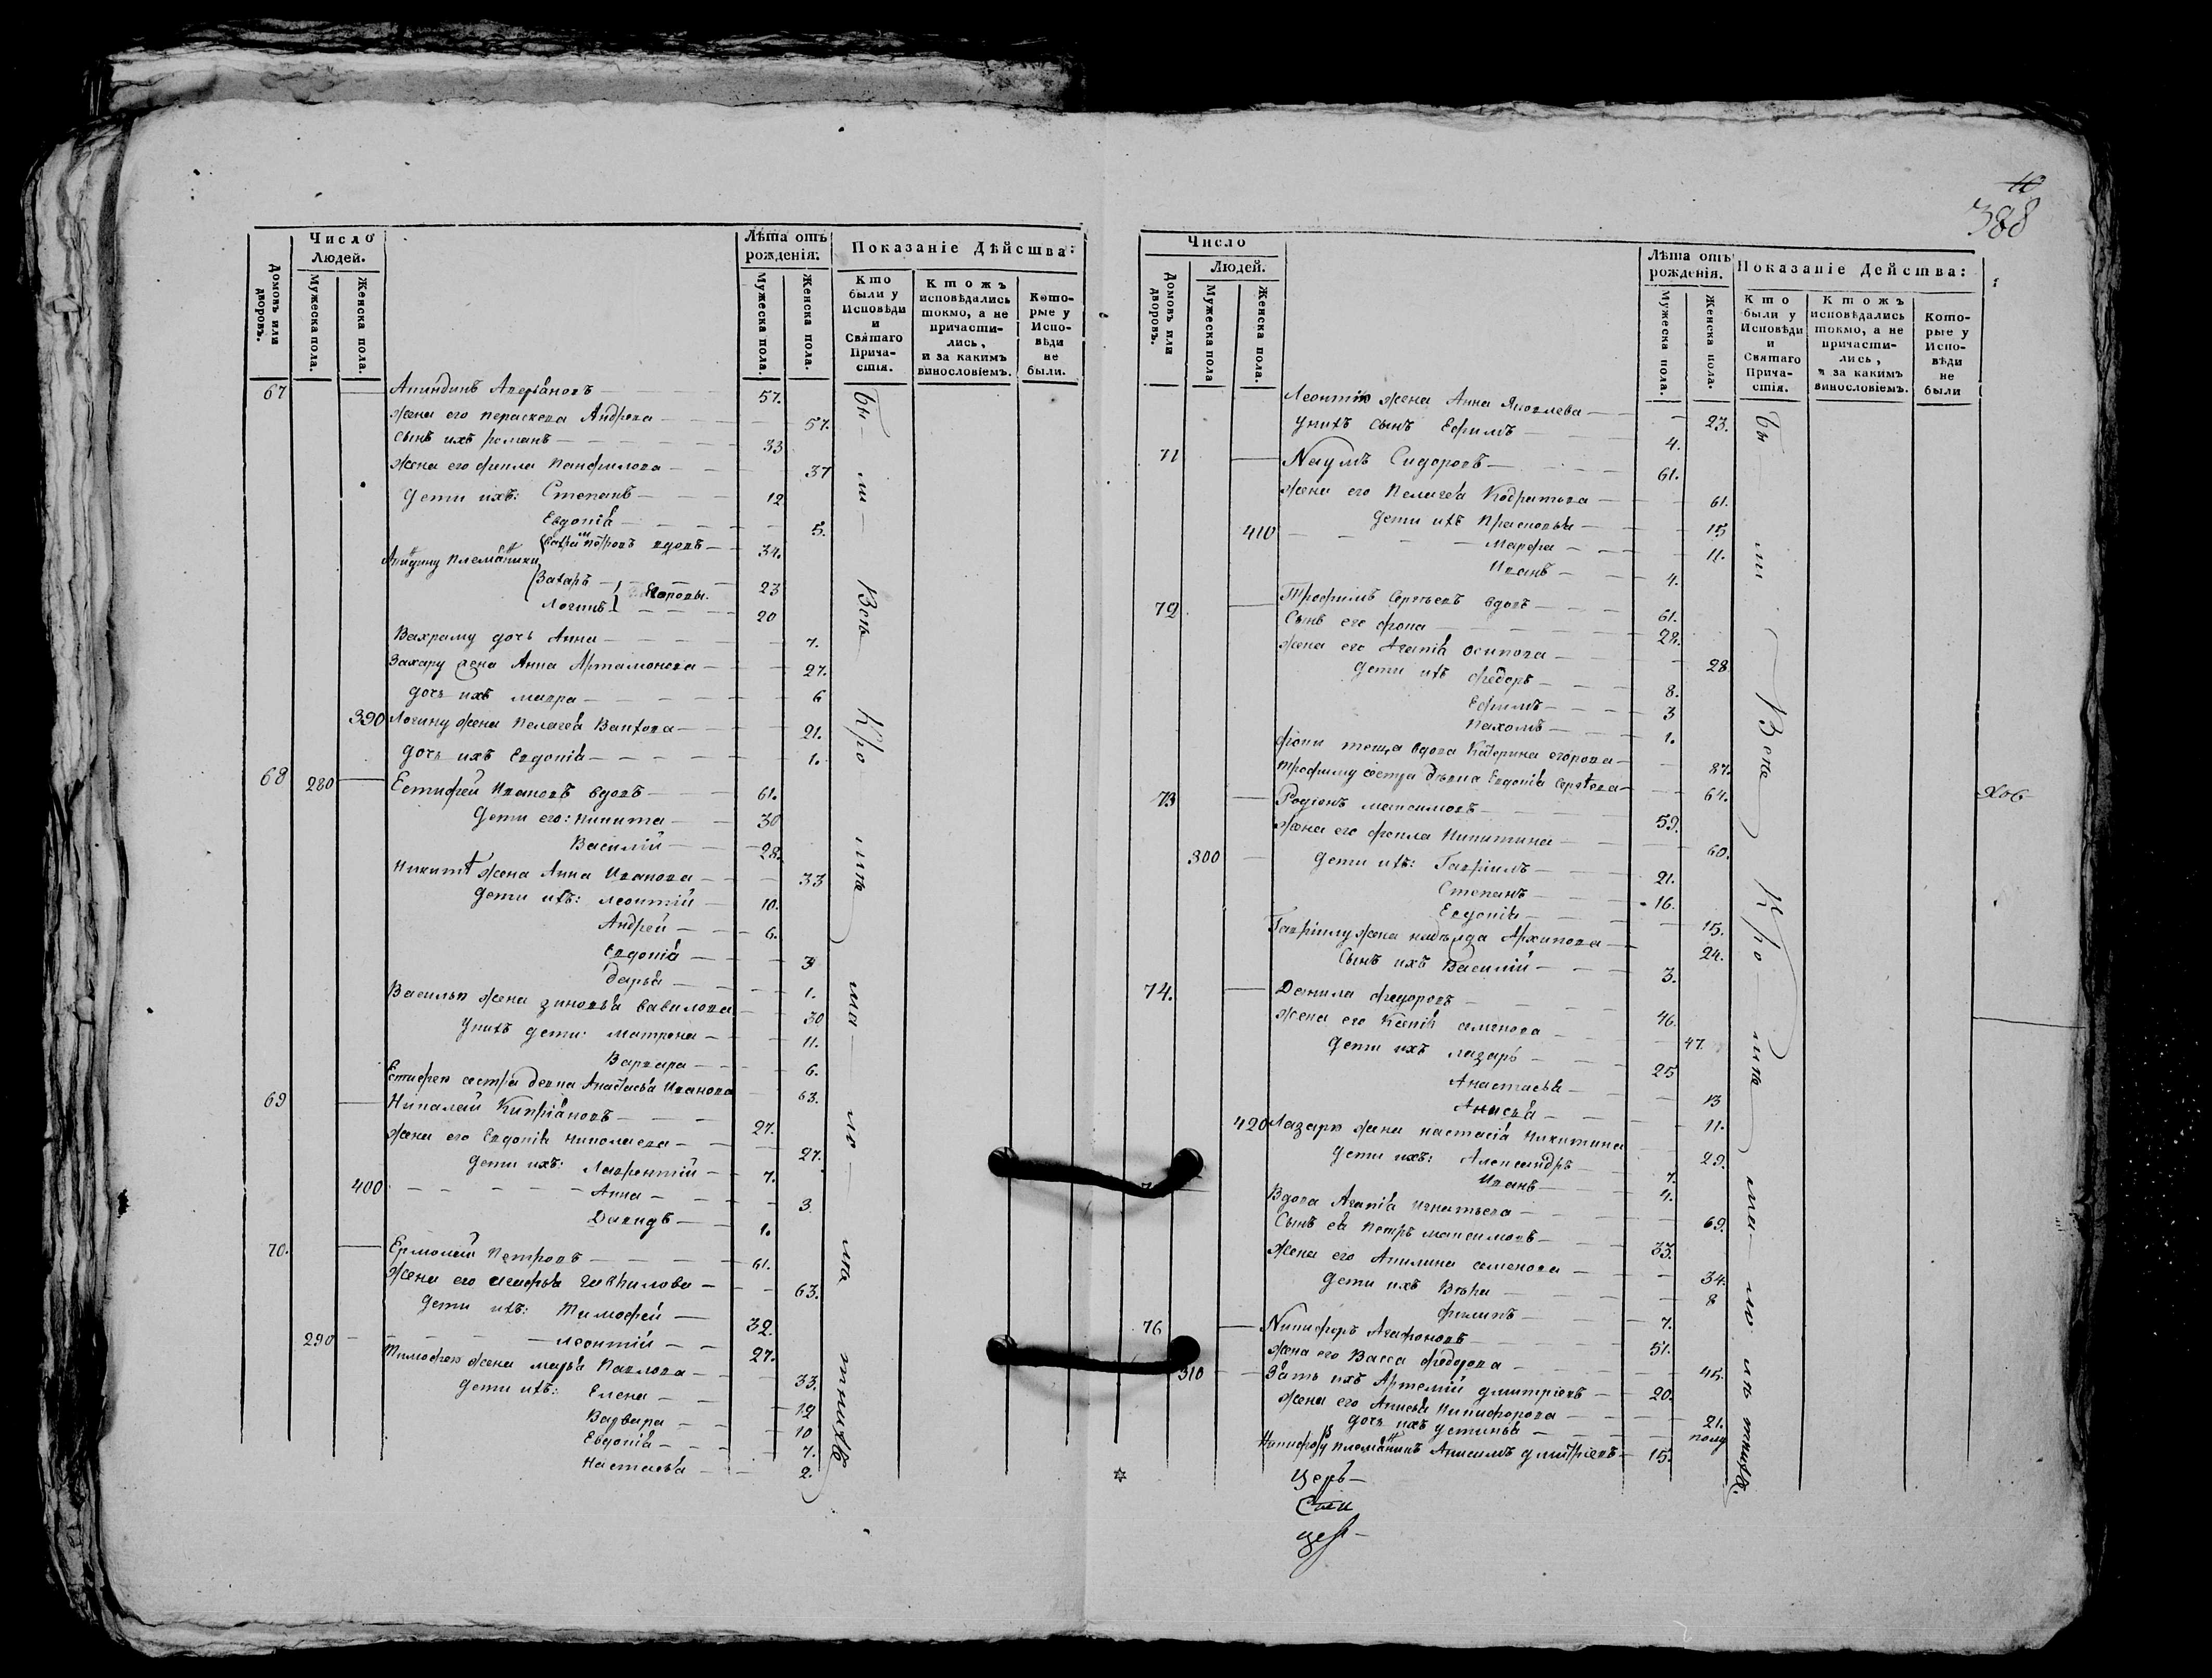 388
Число Людей.
Лѣта отъ рожденія:
Показаніе Дѣйства:
Домовъ или дворовъ.
Мужеска пола.
Женска пола.
Мужеска пола.
Женска пола.
Кто были у Исповѣди и Святаго Причастія.
Ктожъ исповѣдались токмо, а не причастились, и за какимъ винословіемъ.
Которые у Исповѣди не были.
67 57.
жена его параскева Андреева 57.
сынъ ихъ романъ 33
жена его фекла Панфилова 37
дети ихъ: Степанъ 12
Евдокіа 5.
вдовъ 34.
племѧники Захаръ 23
Логинъ Егоровы. 20
Вахраму дочь Анна 7.
Захару жена Анна Артамонова 27.
дочь ихъ мавра 6
390 Логину жена Пелагеѧ 21.
дочь ихъ Евдокіа 1.
68 280 Естифей Ивановъ вдовъ 61.
дети его: никита 30
Василій 28.
Никитѣ жена Анна Иванова 33
дети ихъ: леонтій 10.
Андрей 6.
Евдокіа 3
дарьѧ 1.
Василью жена зиновьѧ вавилова 30
у нихъ дети: матрона 11.
Варвара 6.
Естифею сестра девка Анастасьѧ Иванова 63.
69 Николай Кипріановъ 27.
жена его Евдокіа николаева 27.
дети ихъ: Лаврентій 7.
400 Анна 3.
Давидъ 1.
70. Ермолай Петровъ 61.
жена его агафьѧ гавкилова 63.
дети ихъ: Тимофей 32.
290 леонтій 27.
Тимофею жена марьѧ Павлова 33.
дети ихъ: Елена 12
Варвара 10
Евдокіа 7.
Настасьѧ 2.
Число Людей.
Лѣта отъ рожденія.
Показаніе Действа:
Домовъ или дворовъ.
Мужеска пола
Женска пола.
Мужеска пола.
Женска пола.
Кто были у Исповѣди и Святаго Причастія.
Ктожъ исповѣдались токмо, а не причастились, и за какимъ винословіемъ.
Которые у Исповѣди не были
Леонтію жена Анна Яковлева 23.
у нихъ сынъ Ефимъ 4.
71 Наумъ Сидоровъ 61.
жена его Пелагеѧ Кодратьева 61.
410 дети ихъ Прасковьѧ 15
Марфа 11.
Иванъ 4.
72 Трофимъ Сергѣевъ вдовъ 61.
Сынъ его фока 28.
жена его Агапіѧ осипова 28
дети ихъ федоръ 8.
Ефимъ 3
Пахомъ 1.
фоки теща вдова Катерина егорова 87.
трофиму сестра дѣвка Евдокіѧ 64.
73 Родіонъ максимовъ 59.
жена его фекла Никитина 60.
300 дети ихъ: Гавріилъ 21.
Степанъ 16.
Евдокіѧ 15.
Гавріилу жена надѣжда Архипова 24.
Сынъ ихъ Василій 3.
74. Данила федоровъ 46.
жена его Ксеніѧ семенова 47.
дети ихъ лазарь 25
Анастасьѧ 13
Анисьѧ 11.
420 Лазарю жена настасіѧ Никитина 29.
дети ихъ: Александръ 7.
Иванъ 4.
Вдова Агапіѧ игнатьева 69.
Сынъ еѧ Петръ максимовъ 33.
жена его Акилина семенова 34.
дети ихъ Вѣра 8
филипъ 7.
76 Никифоръ Агафоновъ 51.
жена его Васса федорова 45.
310 Зать ихъ Артемій дмитріевъ 20.
жена его Анисьѧ Никифорова 21.
дочь ихъ устиньѧ полу
Никифору племѧникъ Анисимъ дмитріевъ 15.